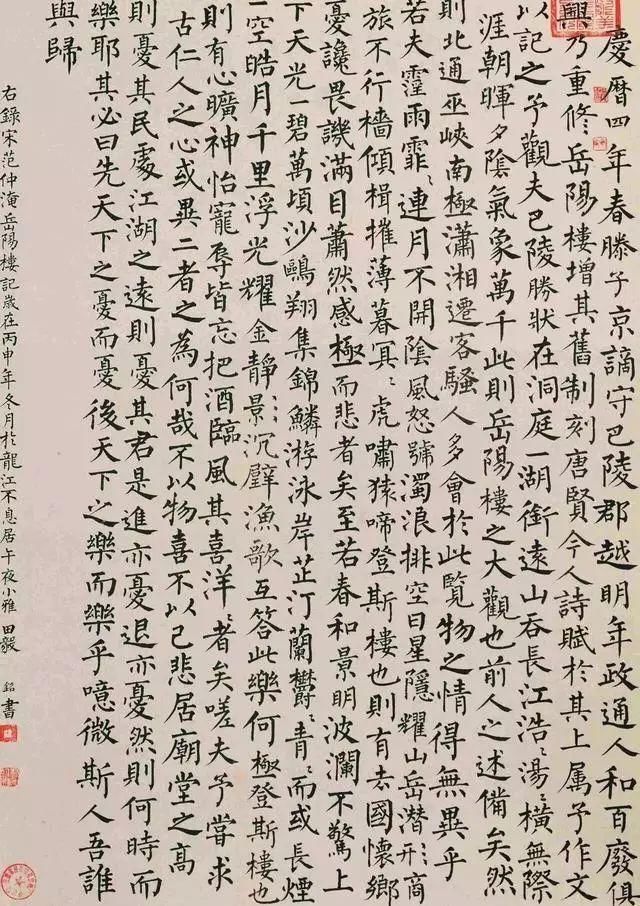 慶曆四年春滕子京謫守巴陵郡越明年政通人和百廢俱
興乃重修岳陽樓增其舊制刻唐賢今人詩賦於其上属予作文
以記之予觀夫巴陵勝狀在洞庭一湖銜遠山吞長江浩〻湯〻橫無際
涯朝暉夕陰氣象萬千此則岳陽樓之大觀也前人之述備矣然
則北通巫峽南極瀟湘遷客騷人多會於此覽物之情得無異乎
若夫霪雨霏〻連月不開陰風怒號濁浪排空日星隱耀山岳潛形商
旅不行檣傾楫摧薄暮冥〻虎嘯猿啼登斯樓也則有去國懷鄉
憂讒畏譏滿目蕭然感極而悲者矣至若春和景明波瀾不驚上
下天光一碧萬頃沙鷗翔集錦鱗游泳岸芷汀蘭欝〻青〻而或長煙
一空皓月千里浮光耀金靜景沉璧漁歌互答此樂何極登斯樓也
則有心曠神怡寵辱皆忘把酒臨風其喜洋〻者矣嗟夫予嘗求
古仁人之心或異二者之為何哉不以物喜不以己悲居廟堂之高
則憂其民處江湖之遠則憂其君是進亦憂退亦憂然則何時而
樂耶其必曰先天下之憂而憂後天下之樂而樂乎噫微斯人吾誰
與歸
右錄宋范仲淹岳陽樓記歲在丙申年冬月於龍江不息居午夜小雅田毅銘書